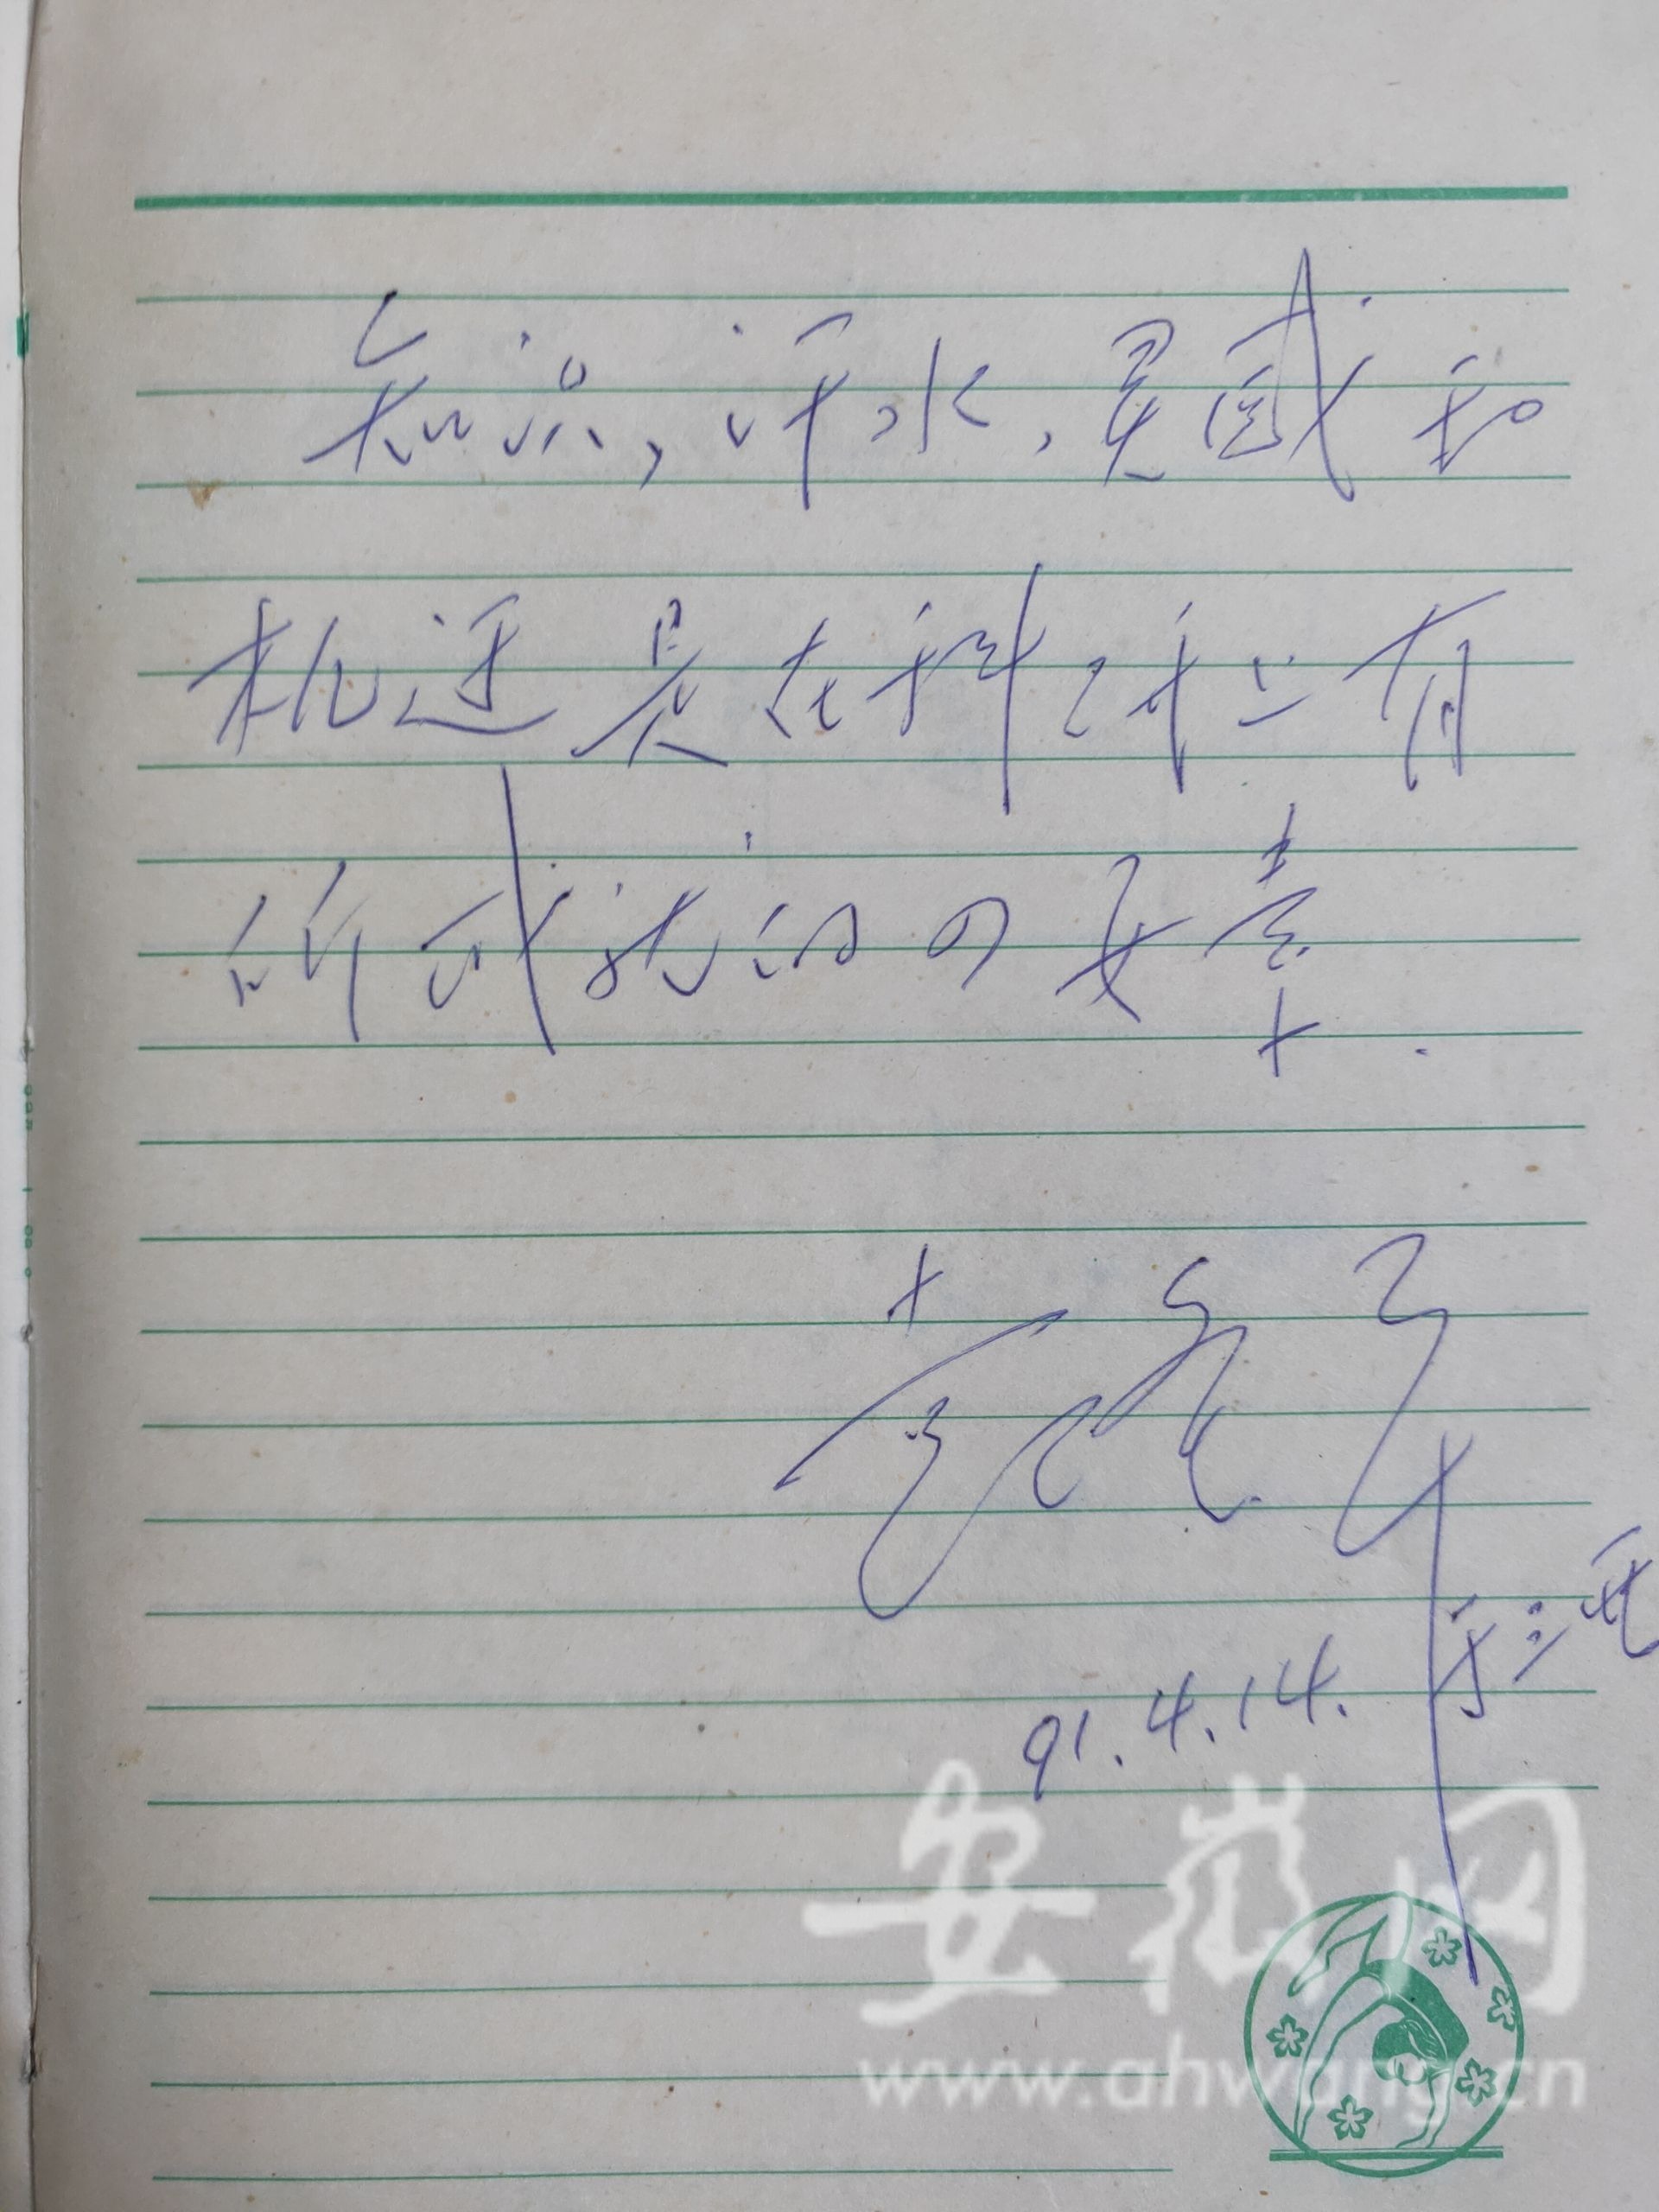 知识，汗水，灵感和
机遇是在科研上有
所成就的四要素.
袁隆平
91.4.14.
安徽网
www.ahwang.cn